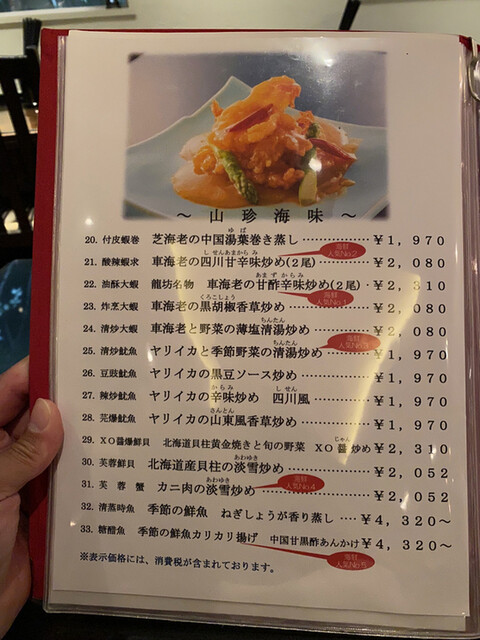 ～ 山 珍 海 味 ～
20. 付皮蝦巻 芝海老の中国湯葉巻き蒸し ……………… ¥1,970
ゆば
21. 酸辣蝦求 車海老の四川甘辛味炒め(2尾) ……… ¥2,080
しせんあまからみ
海鮮人気No.2
22. 油酥大蝦 龍坊名物 車海老の甘酢辛味炒め(2尾) … ¥2,310
あまずからみ
海鮮人気No.1
23. 炸烹大蝦 車海老の黒胡椒香草炒め ……………… ¥2,080
くろこしょう
24. 清炒大蝦 車海老と野菜の薄塩清湯炒め ………… ¥2,080
ちんたん
海鮮
25. 清炒魷魚 ヤリイカと季節野菜の清湯炒め ……… ¥1,970
ちんたん
26. 豆豉魷魚 ヤリイカの黒豆ソース炒め …………… ¥1,970
27. 辣炒魷魚 ヤリイカの辛味炒め 四川風 ………… ¥1,970
からみ しせん
28. 芫爆魷魚 ヤリイカの山東風香草炒め …………… ¥1,970
さんとん
29. XO醤爆鮮貝 北海道貝柱黄金焼きと旬の野菜 XO醤炒め ¥2,310
じゃん
30. 芙蓉鮮貝 北海道産貝柱の淡雪炒め ……………… ¥2,052
あわゆき
31. 芙 蓉 蟹 カニ肉の淡雪炒め ……………………… ¥2,052
あわゆき
海鮮人気No.4
32. 清蒸時魚 季節の鮮魚 ねぎしょうが香り蒸し … ¥4,320～
33. 糖醋魚 季節の鮮魚カリカリ揚げ 中国甘黒酢あんかけ ¥4,320～
海鮮人気No.5
※表示価格には、消費税が含まれております。